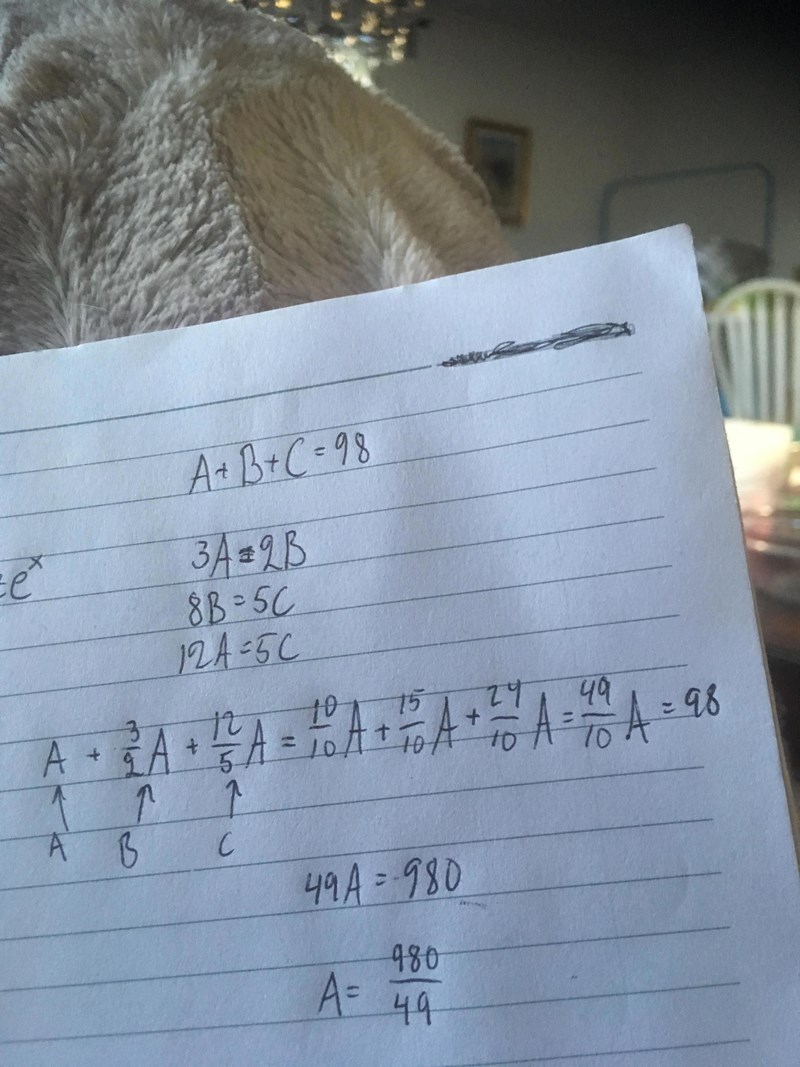 A+B+C=98
=e^x
3A=2B
8B=5C
12A=5C
A + 3/2 A + 12/5 A = 10/10 A + 15/10 A + 24/10 A = 49/10 A = 98
↑ ↑ ↑
A B C
49A = 980
A = 980/49